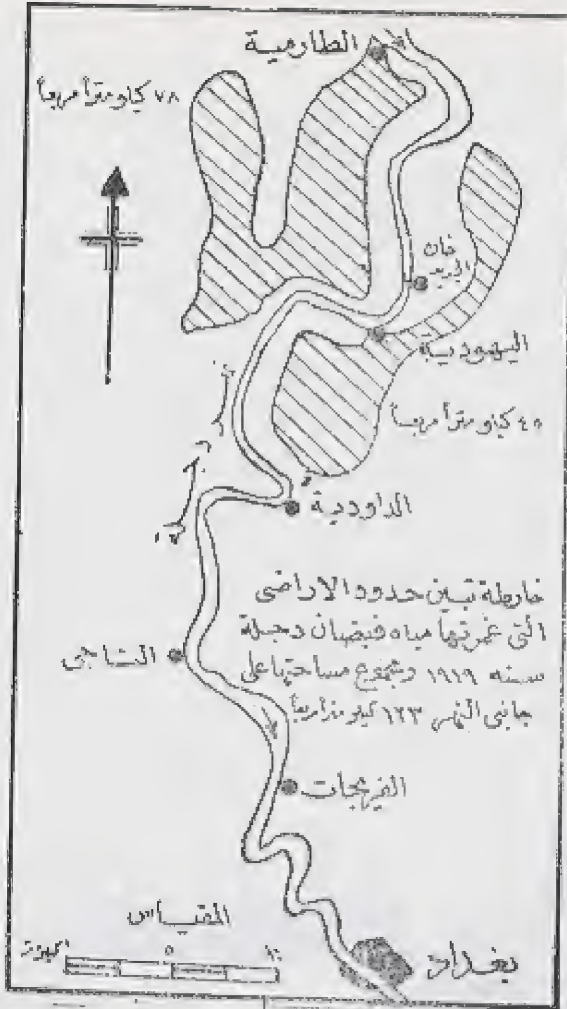 الطارمية
٧٨ كيلو متراً مربعاً
خان
اليهودية
٤٥ كيلو متراً مربعاً
الداودية
خارطة تبين حدود الاراضى
التى غمرتها مياه فيضان دجلة
سنه ١٩١٩ ومجموع مساحتها على
جانبى النهر ١٢٣ كيلو متراً مربعاً
التاجى
الفريجات
المقياس
٥
١٠
بغداد